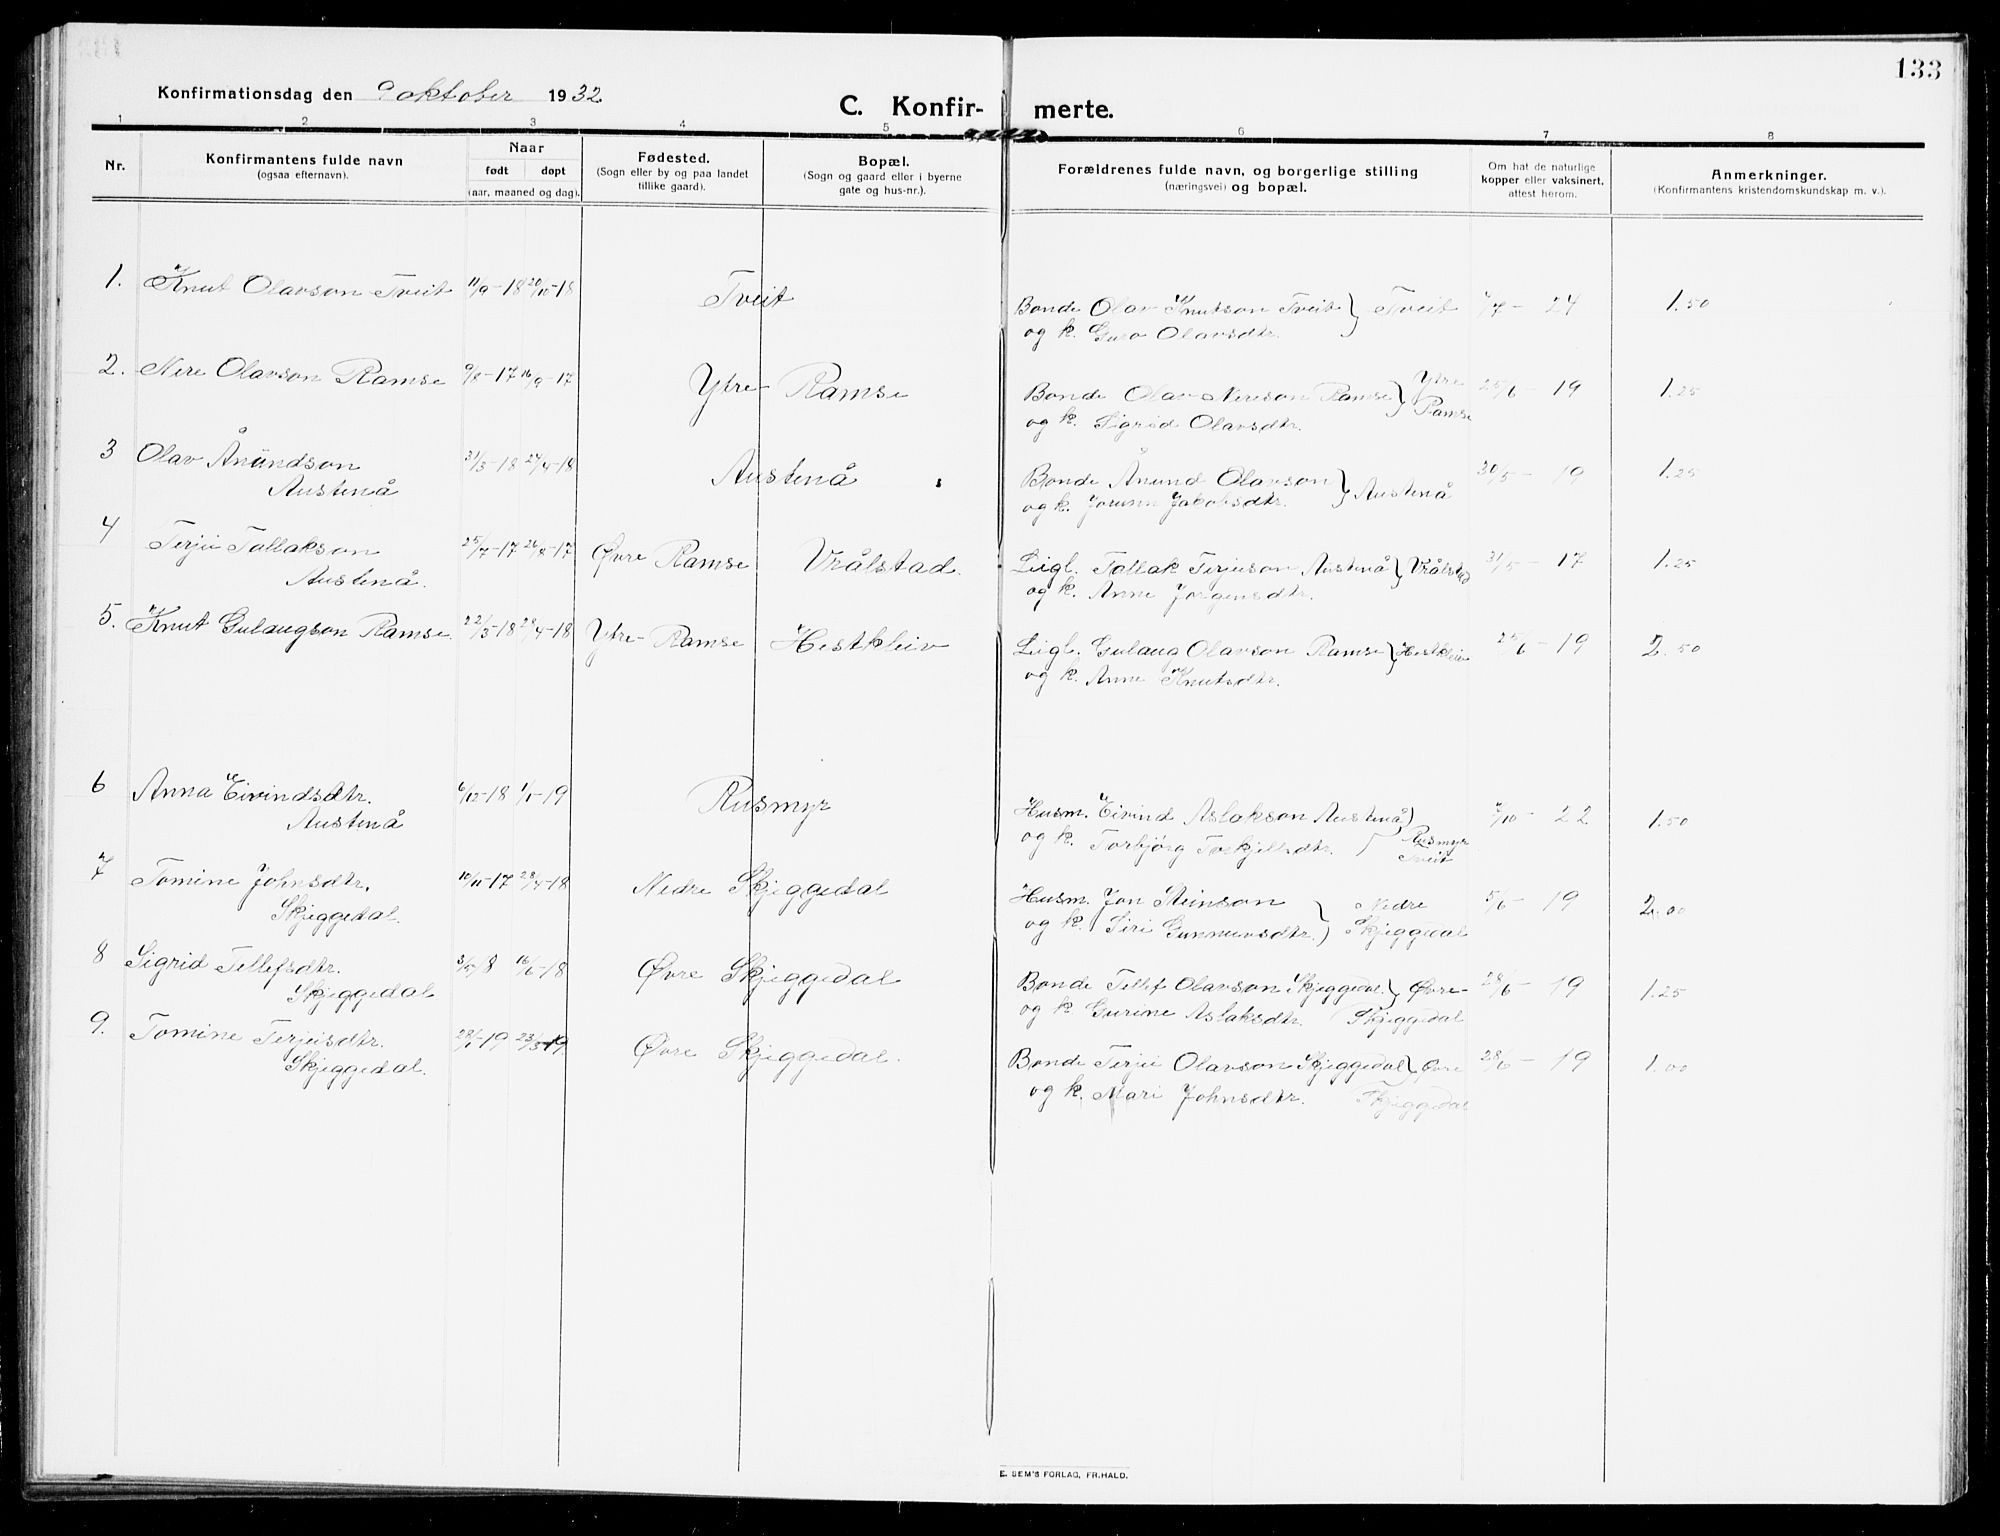 133
Konfirmationsdag den 9 oktober 1932
C. Konfir- merte.
1 2 3 4 5 6 7 8
Nr.
Konfirmantens fulde navn
(ogsaa efternavn).
Naar
født døpt
(aar, maaned og dag).
Fødested.
(Sogn eller by og paa landet
tillike gaard).
Bopæl.
(Sogn og gaard eller i byerne
gate og hus-nr.).
Forældrenes fulde navn, og borgerlige stilling
(næringsvei) og bopæl.
Om hat de naturlige
kopper eller vaksinert,
attest herom.
Anmerkninger.
(Konfirmantens kristendomskundskap m. v.).
1. Knut Olavson Tveit 11/9-18 20/10-18 Tveit
Bonde Olav Knutson Tveit } Tveit /7-24 1.50
og k. Guro Olavsdtr.
2. Nere Olavson Ramse 9/8-17 16/9-17 Ytre- Ramse
Bonde Olav Nereson Ramse } Ytre Ramse 25/6-19 1.25
og k. Sigrid Olavsdtr.
3 Olav Ånundson
Austenå 31/3-18 24/4-18 Austenå
Bonde Ånund Olavson } Austenå 30/5-19 1.25
og k. Jorunn Jakobsdtr.
4 Terjei Tallakson
Austenå. 25/7-17 26/8-17 Øvre Ramse Vrålstad.
Leigl. Tallak Terjeison Austenå } Vrålstad 31/5-17 1.25
og k. Anne Jørgensdtr.
5. Knut Gulaugson Ramse 22/3-18 28/4-18 Ytre- Ramse Hestkleiv
Leigl. Gulaug Olavson Ramse } Hestkleiv 25/6-19 2.50
og k. Anne Knutsdtr.
6 Anna Eivindsdtr.
Austenå 6/12-18 1/1-19 Rusmyr
Husm. Eivind Aslakson Austenå } /10-22 1.50
og k. Torbjørg Torkjellsdtr. Rusmyr
Tveit
7 Tomine Johnsdtr.
Skjeggedal. 10/11-17 28/4-18 Nedre Skjeggedal
Husm. Jon Steinson } Nedre 5/6-19 2.00
og k. Siri Gunnuvsdtr. Skjeggedal
8 Sigrid Tellefsdtr.
Skjeggedal 3/5 18 16/6-18 Øvre Skjeggedal
Bonde Tellef Olavson Skjeggedal. } Øvre- 28/6-19 1.25
og k. Gurine Aslaksdtr. Skjeggedal
9. Tomine Terjeisdtr.
Skjeggedal. 28/1-19 23/3-19 Øvre Skjeggedal.
Bonde Terjei Olavson Skjeggedal } Øvre 28/6-19 1.00
og k. Mari Johnsdtr. Skjeggedal
E. SEM'S FORLAG, FR.HALD.